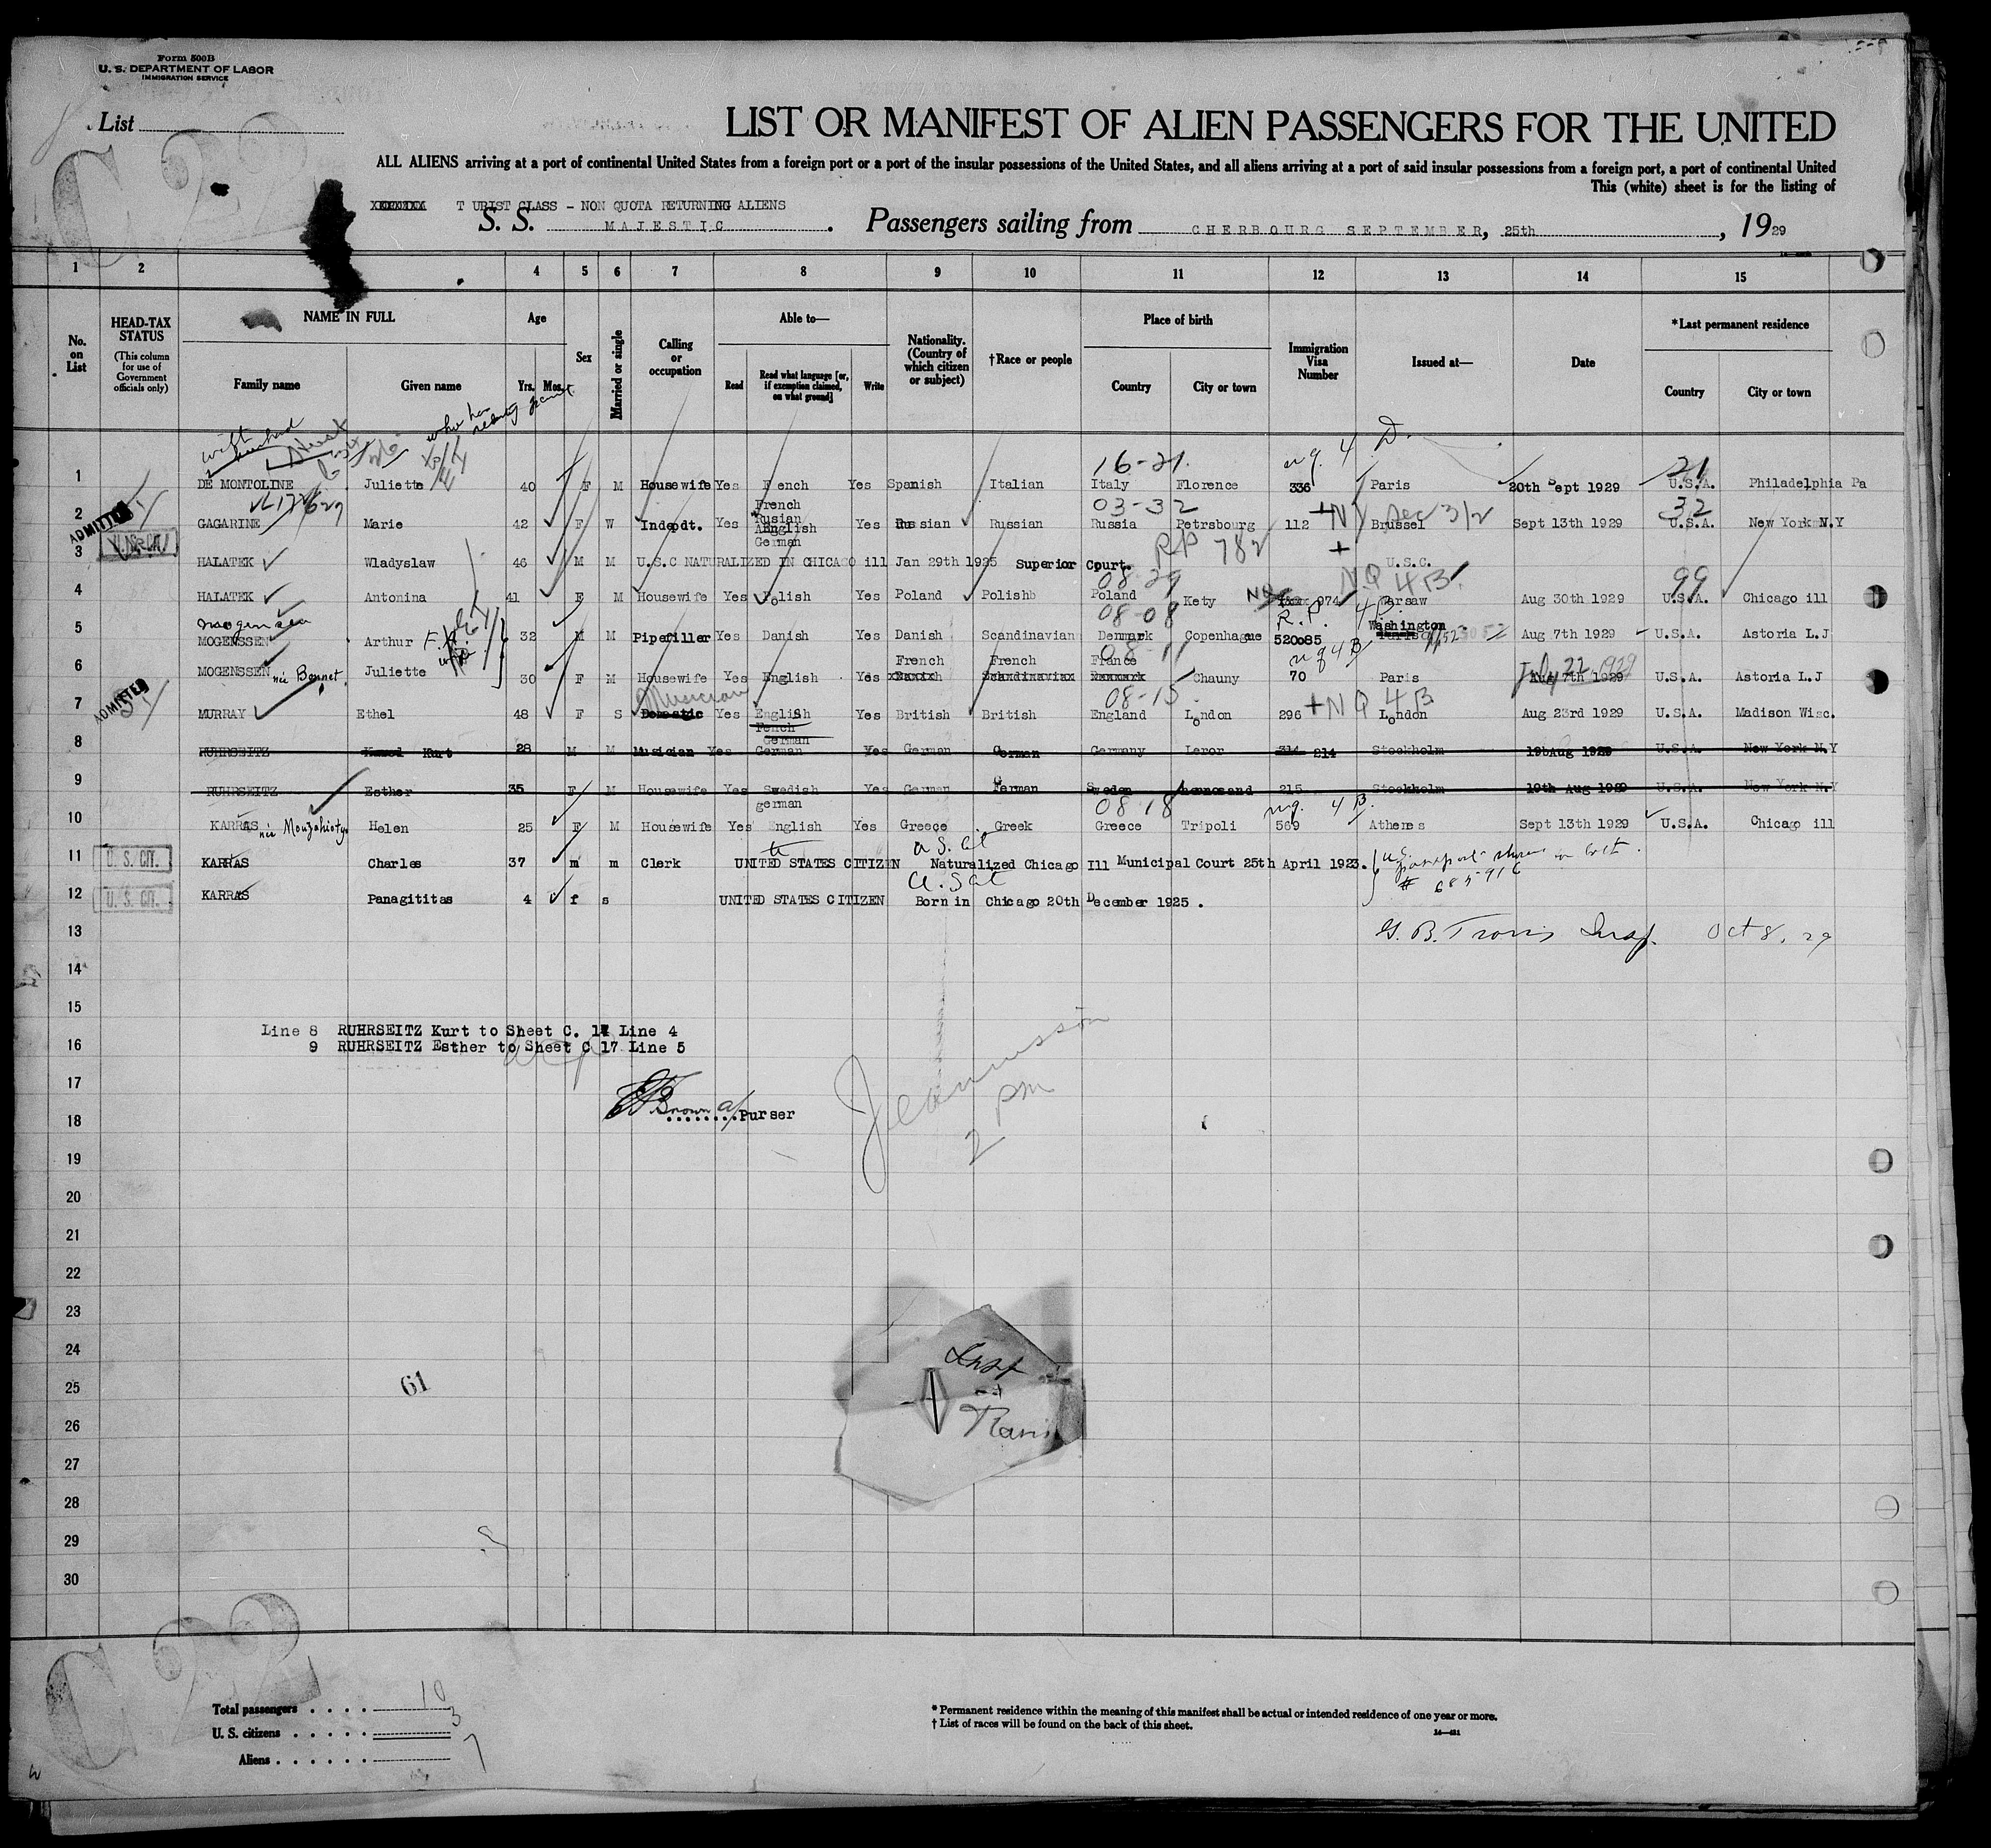 Form 500B
U. S. DEPARTMENT OF LABOR
IMMIGRATION SERVICE
List
C 22
LIST OR MANIFEST OF ALIEN PASSENGERS FOR THE UNITED
ALL ALIENS arriving at a port of continental United States from a foreign port or a port of the insular possessions of the United States, and all aliens arriving at a port of said insular possessions from a foreign port, a port of continental United
This (white) sheet is for the listing of
T URIST CLASS - NON QUOTA RETURNING ALIENS
S. S. MAJESTIC. Passengers sailing from CHERBOURG SEPTEMBER, 25th, 1929
1 2 4 5 6 7 8 9 10 11 12 13 14 15
No. on List
HEAD-TAX STATUS (This column for use of Government officials only)
NAME IN FULL
Family name Given name
Age
Yrs. Mos.
Sex
Married or single
Calling or occupation
Able to—
Read Read what language [or, if exemption claimed, on what ground] Write
Nationality. (Country of which citizen or subject)
†Race or people
Place of birth
Country City or town
Immigration Visa Number
Issued at—
Date
*Last permanent residence
Country City or town
who has
16-21. nq. 4 D. 21
1 DE MONTOLINE Juliette 40 F M Housewife Yes French Yes Spanish Italian Italy Florence 336 Paris 20th Sept 1929 U.S.A. Philadelphia Pa
03-32 32
ADMITTED
2 GAGARINE Marie 42 F W Indepdt. Yes French Rusian English German Yes Russian Russian Russia Petrsbourg 112 Brussel Sept 13th 1929 U.S.A. New York N.Y
U.S. CIT. RP 782
3 HALATEK Wladyslaw 46 M M U.S.C NATURALIZED IN CHICAGO ill Jan 29th 1925 Superior Court. U.S.C.
08-29 NQ 4B. 99
4 HALATEK Antonina 41 F M Housewife Yes Polish Yes Poland Polishb Poland Kety 974 Warsaw Aug 30th 1929 U.S.A. Chicago ill
Mogensen 08-08 R.P. 4
5 MOGENSSEN Arthur 32 M M Pipefiller Yes Danish Yes Danish Scandinavian Denmark Copenhague 520085 Washington Aug 7th 1929 U.S.A. Astoria L.J
08-11 nq 4B
6 MOGENSSEN née Bonnet. Juliette 30 F M Housewife Yes English Yes French French France Chauny 70 Paris Aug 7th 1929 July 22 1929 U.S.A. Astoria L.J
ADMITTED Musician 08-15 + NQ 4B
7 MURRAY Ethel 48 F S Domestic Yes English French German Yes British British England London 296 London Aug 23rd 1929 U.S.A. Madison Wisc.
8 RUHRSEITZ Kurt 28 M M Musician Yes German Yes German German Germany Leror 314 214 Stockholm 19bAug 1929 U.S.A. New York N.Y
9 RUHRSEITZ Esther 35 F M Housewife Yes Swedish german Yes German German Sweden hernosand 215 Stockholm 19th Aug 1929 U.S.A. New York N.Y
08 18 nq. 4B.
10 KARRAS née Houzahiotys Helen 25 F M Housewife Yes English Yes Greece Greek Greece Tripoli 569 Athenes Sept 13th 1929 U.S.A. Chicago ill
U.S. Cit
11 U. S. CIT. KARRAS Charles 37 m m Clerk UNITED STATES CITIZEN Naturalized Chicago Ill Municipal Court 25th April 1923.
U.S. passport shown for both.
# 685916
U.S Cit
12 U. S. CIT. KARRAS Panagititas 4 f s UNITED STATES CITIZEN Born in Chicago 20th December 1925.
13 G. B. Travis Insp. Oct 8, 29
14
15
Line 8 RUHRSEITZ Kurt to Sheet C. 17 Line 4
16 9 RUHRSEITZ Esther to Sheet C 17 Line 5
17
Brown a/Purser
18
2 pm
19
20
21
22
23
24 Insp
25 61
26 Travis
27
28
29
30
C 22
Total passengers 10
U. S. citizens 3
Aliens 7
* Permanent residence within the meaning of this manifest shall be actual or intended residence of one year or more.
† List of races will be found on the back of this sheet.